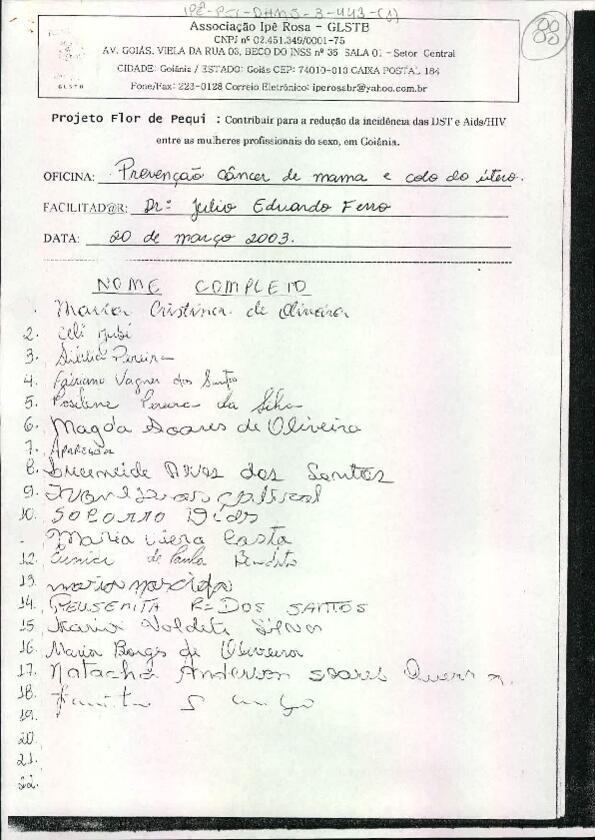 IPÊ-PCI-DHMS-3-443-(1)
Associação Ipê Rosa - GLSTB
CNPJ nº 02.451.349/0001-75
AV. GOIÁS, VIELA DA RUA 03, BECO DO INSS nº 35 SALA 01 - Setor Central
CIDADE: Goiânia / ESTADO: Goiás CEP: 74010-010 CAIXA POSTAL 184
Fone/Fax: 223-0128 Correio Eletrônico: iperosabr@yahoo.com.br
GLSTB
Projeto Flor de Pequi : Contribuir para a redução da incidência das DST e Aids/HIV
entre as mulheres profissionais do sexo, em Goiânia.
OFICINA: Prevenção câncer de mama e colo do útero.
FACILITAD@R: Drº Julio Eduardo Ferro
DATA: 20 de março 2003.
NOME COMPLETO
. Maria Cristina de Oliveira
2. Celi
3. Pereira
4. Fabiano Vagner dos Santos
5. Rosilene Pereira da Silva
6. Magda Soares de Oliveira
7. Aparecida
8. Alves dos Santos
9.
10. Socorro Dias
. Maria Viera Costa
12. Eunice de Paula Benedito
13. Maria
14. R= DOS SANTOS
15. Maria Valdete Silva
16. Maria Borges de Oliveira
17. Natacha Anderson soares
18.
19.
20.
21.
22.